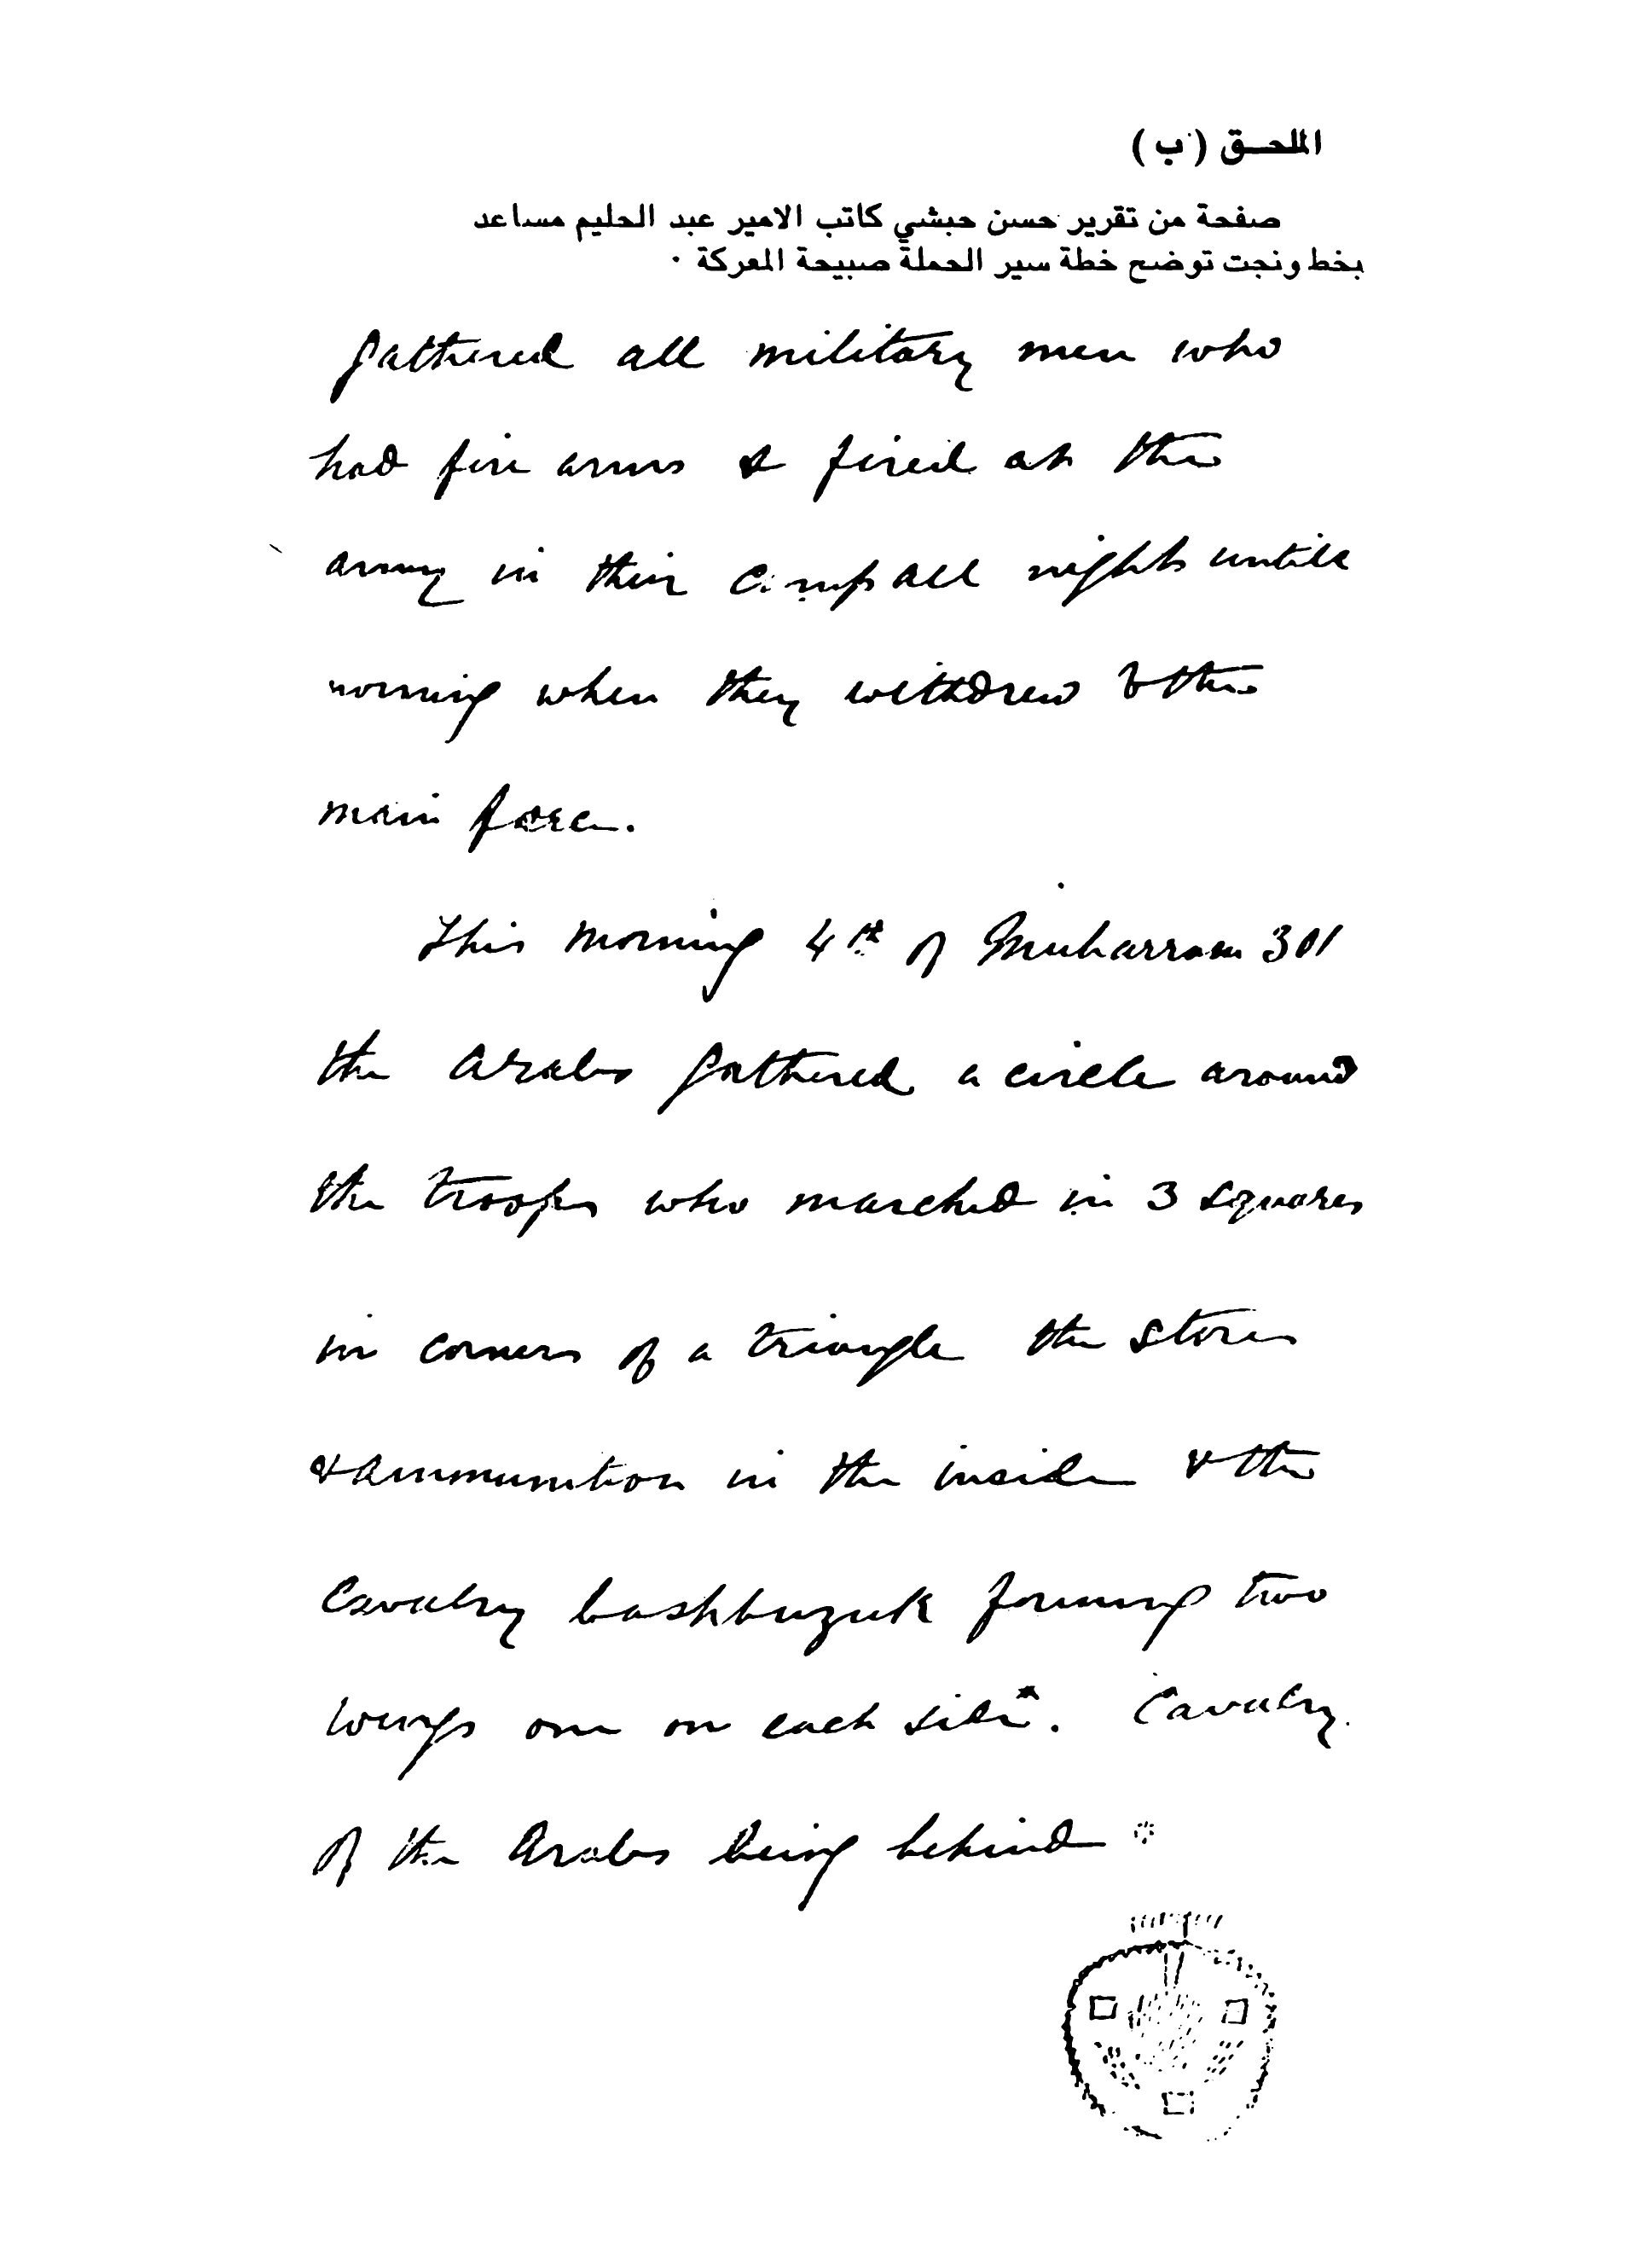 الملحـق (ب)
صفحة من تقرير حسن حبشي كاتب الامير عبد الحليم مساعد
بخط ونجت توضح خطة سير الحملة صبيحة المعركة ٠
gathered all military men who
had fire arms & fired at the
army in their camp all night untill
morning when they withdrew to the
main force.
This morning 4th of Muharram 301
the Arabs gathered a circle around
the troops who marched in 3 squares
in corners of a triangle the stores
& ammunition in the inside & the
Cavalry bashbuzuk forming two
wings one on each side*. Cavalry
of the Arabs being behind *